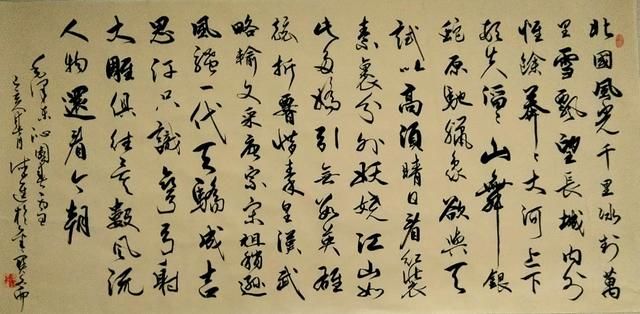 北國風光千里冰封萬
里雪飄望長城內外
惟餘莽〻大河上下
頓失滔〻山舞銀
蛇原馳臘象欲與天
試比高須晴日看紅裝
素裹分外妖嬈江山如
此多嬌引無數英雄
競折腰惜秦皇漢武
略輸文采唐宗宋祖稍遜
風騷一代天驕成吉
思汗只識彎弓射
大雕俱往矣數風流
人物還看今朝
毛澤東沁園春